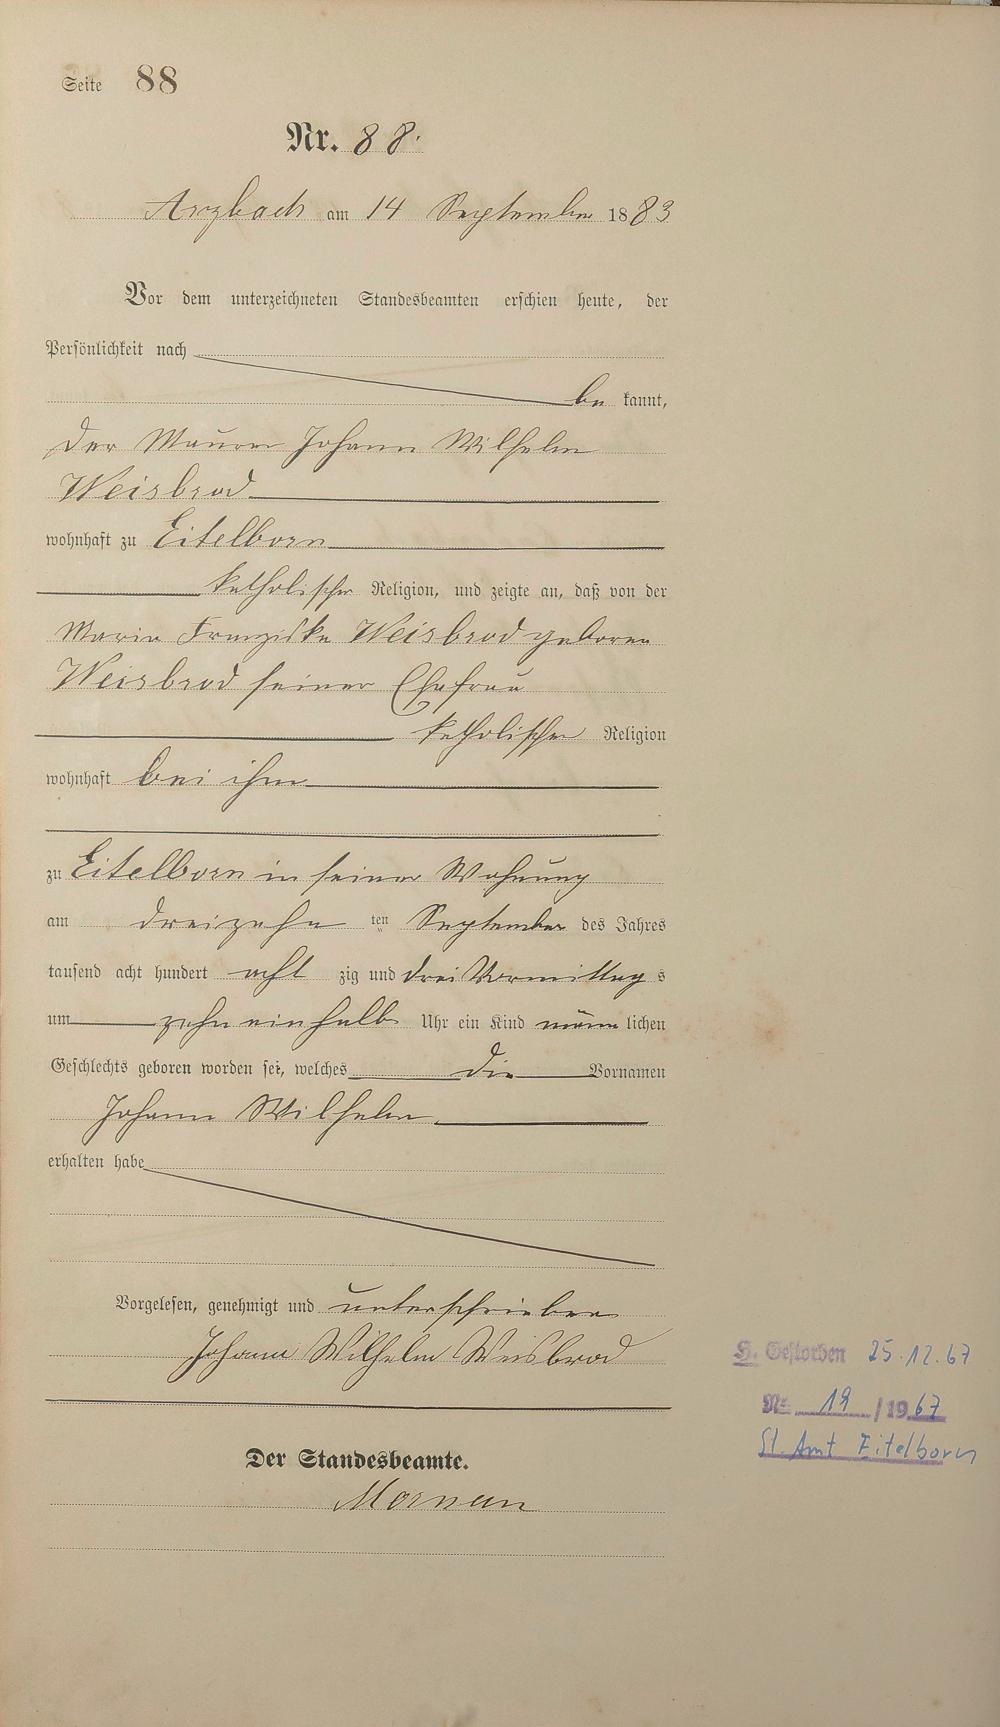 Seite 88
Nr. 88.
Arzbach am 14 September 1883
Vor dem unterzeichneten Standesbeamten erschien heute, der
Persönlichkeit nach
be kannt,
der Maurer Johann Wilhelm
Weisbrod
wohnhaft zu Eitelborn
katholischer Religion, und zeigte an, daß von der
Maria Franziska Weisbrod geborene
Weisbrod seiner Ehefrau
katholischer Religion
wohnhaft bei ihm
zu Eitelborn in seiner Wohnung
am dreizehn ten September des Jahres
tausend acht hundert acht zig und drei Vormittag s
um zehn einhalb Uhr ein Kind männ lichen
Geschlechts geboren worden sei, welches die Vornamen
Johann Wilhelm
erhalten habe
Vorgelesen, genehmigt und unterschrieben
Johann Wilhelm Weisbrod
Der Standesbeamte.
H. Gestorben 25.12.67
Nr. 19 / 1967
St. Amt Eitelborn